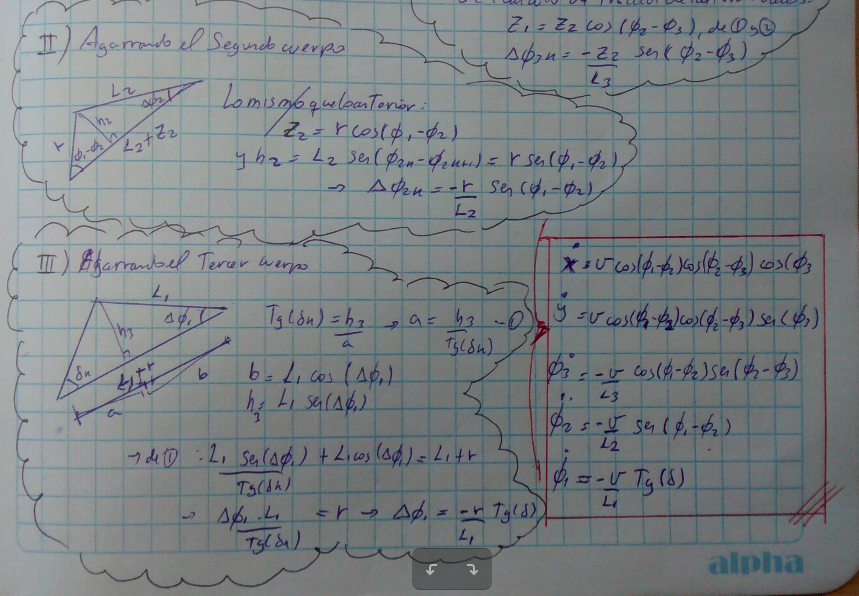 Z₁ = Z₂ cos(ϕ₂-ϕ₃), de ① y ②
Δϕ₃ₙ = -Z₂/L₃ sen(ϕ₂-ϕ₃)
II) Agarrando el Segundo cuerpo
L₂
Δϕ₂
h₂
r
ϕ₁-ϕ₂
L₂+Z₂
Lo mismo que lo anterior:
Z₂ = r cos(ϕ₁-ϕ₂)
y h₂ = L₂ sen(ϕ₂ₙ-ϕ₂ₙ₊₁) = r sen(ϕ₁-ϕ₂)
→ Δϕ₂ₙ = -r/L₂ sen(ϕ₁-ϕ₂)
III) Agarrando el Tercer cuerpo
L₁
Δϕ₁
h₃
δₙ
L₁+r
a
b
Tg(δₙ) = h₃/a → a = h₃/Tg(δₙ) -①
b = L₁ cos(Δϕ₁)
h₃ = L₁ sen(Δϕ₁)
→ de ① : L₁ sen(Δϕ₁)/Tg(δₙ) + L₁cos(Δϕ₁) = L₁+r
→ Δϕ₁·L₁/Tg(δₙ) = r → Δϕ₁ = -r/L₁ Tg(δ)
ẋ = v cos(ϕ₁-ϕ₂)cos(ϕ₂-ϕ₃) cos(ϕ₃
ẏ = v cos(ϕ₁-ϕ₂)cos(ϕ₂-ϕ₃) sen(ϕ₃)
ϕ̇₃ = -v/L₃ cos(ϕ₁-ϕ₂)sen(ϕ₂-ϕ₃)
ϕ̇₂ = -v/L₂ sen(ϕ₁-ϕ₂)
ϕ̇₁ = -v/L₁ Tg(δ)
alpha